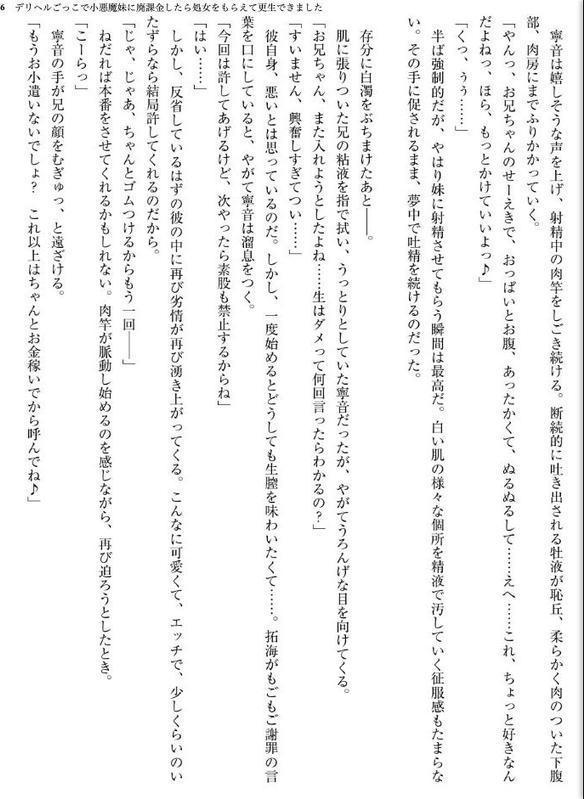 6 デリヘルごっこで小悪魔妹に廃課金したら処女をもらえて更生できました
　寧音は嬉しそうな声を上げ、射精中の肉竿をしごき続ける。断続的に吐き出される牡液が恥丘、柔らかく肉のついた下腹
部、肉房にまでふりかかっていく。
「やんっ、お兄ちゃんのせーえきで、おっぱいとお腹、あったかくて、ぬるぬるして……えへ……これ、ちょっと好きなん
だよねっ、ほら、もっとかけていいよっ♪」
「くっ、うぅ……」
　半ば強制的だが、やはり妹に射精させてもらう瞬間は最高だ。白い肌の様々な個所を精液で汚していく征服感もたまらな
い。その手に促されるまま、夢中で吐精を続けるのだった。
　存分に白濁をぶちまけたあと――。
　肌に張りついた兄の粘液を指で拭い、うっとりとしていた寧音だったが、やがてうろんげな目を向けてくる。
「お兄ちゃん、また入れようとしたよね……生はダメって何回言ったらわかるの？」
「すいません、興奮しすぎてつい……」
　彼自身、悪いとは思っているのだ。しかし、一度始めるとどうしても生膣を味わいたくて……。拓海がもごもご謝罪の言
葉を口にしていると、やがて寧音は溜息をつく。
「今回は許してあげるけど、次やったら素股も禁止するからね」
「はい……」
　しかし、反省しているはずの彼の中に再び劣情が再び湧き上がってくる。こんなに可愛くて、エッチで、少しくらいのい
たずらなら結局許してくれるのだから。
「じゃ、じゃあ、ちゃんとゴムつけるからもう一回――」
　ねだれば本番をさせてくれるかもしれない。肉竿が脈動し始めるのを感じながら、再び迫ろうとしたとき。
「こーらっ」
　寧音の手が兄の顔をむぎゅっ、と遠ざける。
「もうお小遣いないでしょ？　これ以上はちゃんとお金稼いでから呼んでね♪」